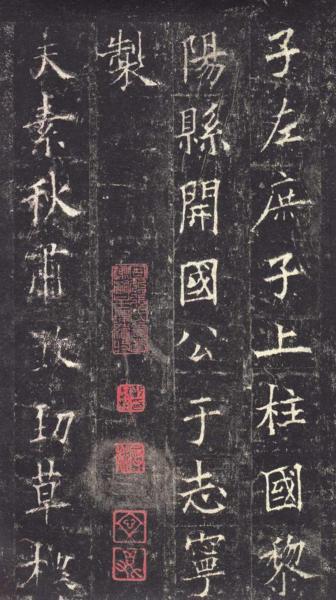 子左庶子上柱國黎
陽縣開國公于志寧
製
夫素秋肅煞勁草標